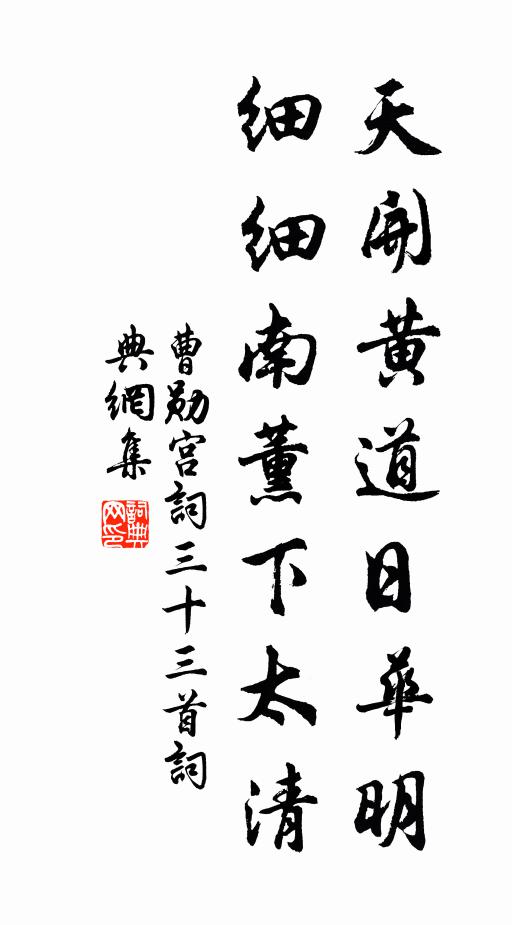 天開黃道日華明
細細南薰下太清
曹勛宮詞三十三首詞
典網集
詞典網印